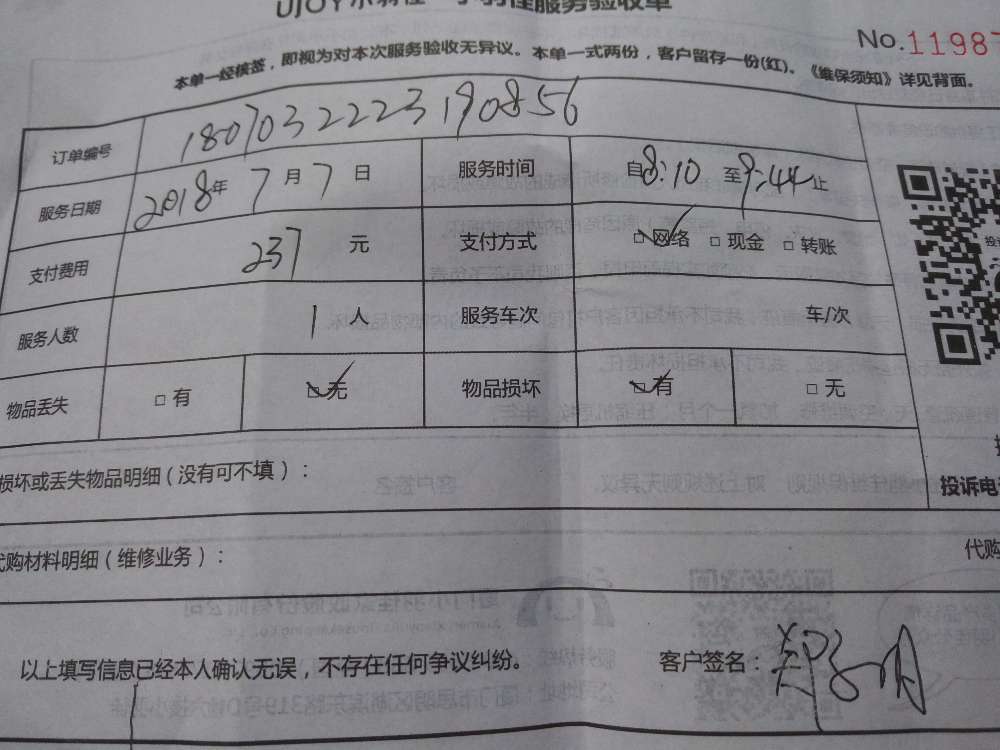 No.11987
本单一经核签，即视为对本次服务验收无异议。本单一式两份，客户留存一份(红)。《维保须知》详见背面。
订单编号 180703222319085​6
服务日期 2018年 7 月 7 日 服务时间 自8:10 至9:44止
支付费用 237 元 支付方式 □网络 □现金 □转账
服务人数 1 人 服务车次 车/次
物品丢失 □ 有 □ 无 物品损坏 □ 有 □ 无
损坏或丢失物品明细（没有可不填）：
投诉电
代购材料明细（维修业务）： 代购
以上填写信息已经本人确认无误，不存在任何争议纠纷。 客户签名：